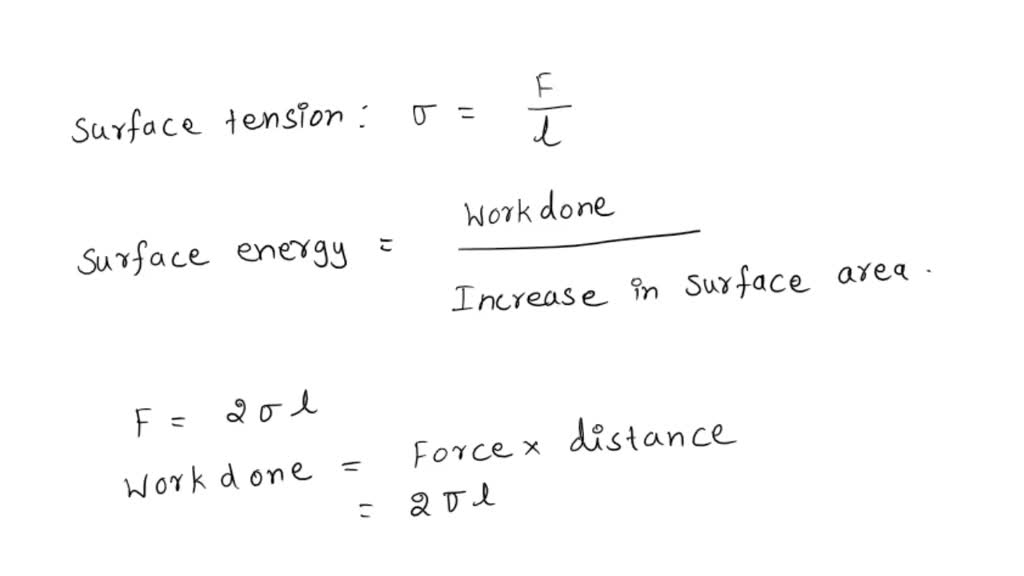 Surface tension: σ = F/l
Surface energy = Workdone / Increase in surface area.
F = 2σl
Workdone = Force × distance
= 2σl